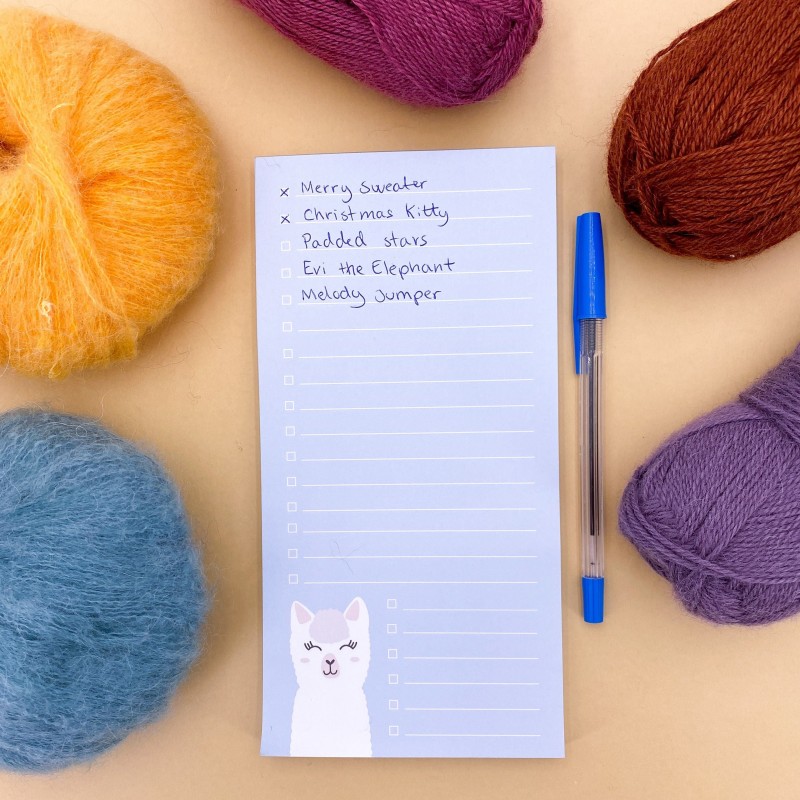 x Merry Sweater
x Christmas Kitty
Padded stars
Evi the Elephant
Melody Jumper